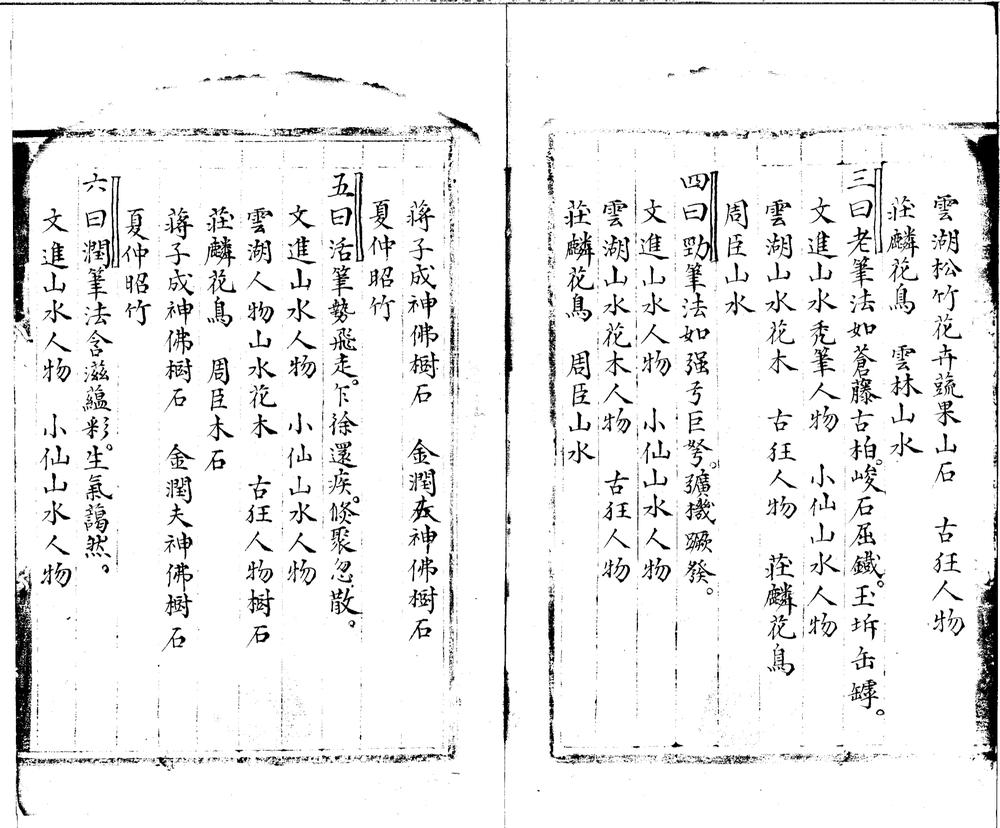 雲湖松竹花卉蔬果山石　古狂人物
莊麟花鳥　雲林山水
三曰老筆法如蒼藤古柏。峻石屈鐵。玉坼缶罅。
文進山水禿筆人物　小仙山水人物
雲湖山水花木　古狂人物　莊麟花鳥
周臣山水
四曰勁筆法如强弓巨弩。彍機蹶發。
文進山水人物　小仙山水人物
雲湖山水花木人物　古狂人物
莊麟花鳥　周臣山水
蔣子成神佛樹石　金潤夫神佛樹石
夏仲昭竹
五曰活筆勢飛走。乍徐還疾。倏聚忽散。
文進山水人物　小仙山水人物
雲湖人物山水花木　古狂人物樹石
莊麟花鳥　周臣木石
蔣子成神佛樹石　金潤夫神佛樹石
夏仲昭竹
六曰潤筆法含滋蘊彩。生氣藹然。
文進山水人物　小仙山水人物